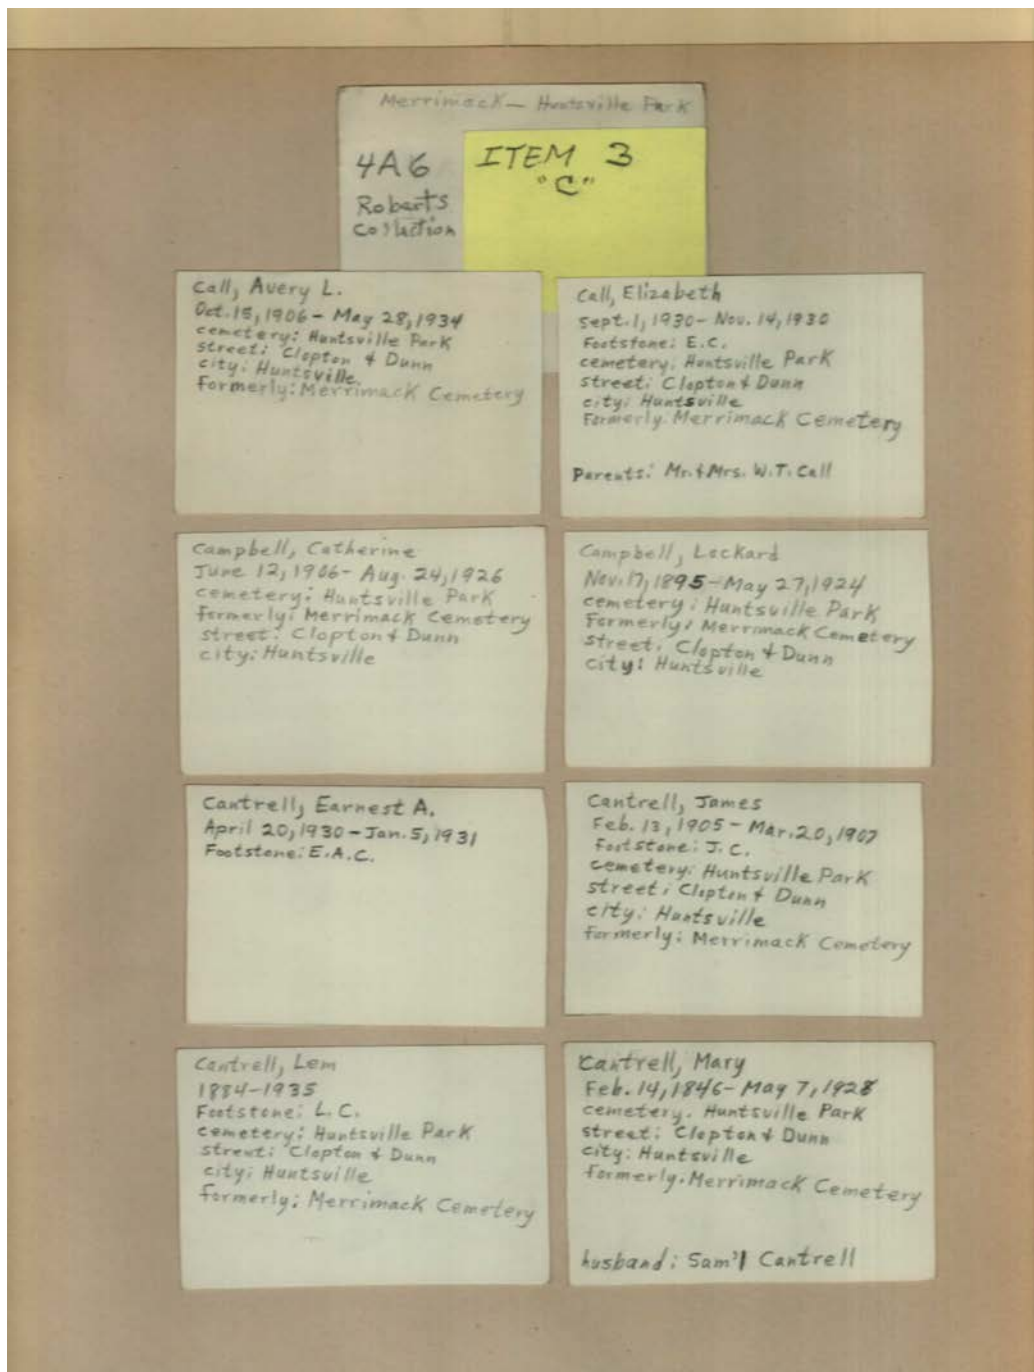 Merrimack — Huntsville Park
4A6
Roberts
Collection
ITEM 3
"C"
Call, Avery L.
Oct. 15, 1906 - May 28, 1934
cemetery: Huntsville Park
street: Clopton & Dunn
city: Huntsville.
formerly: Merrimack Cemetery
Call, Elizabeth
Sept. 1, 1930 - Nov. 14, 1930
Footstone: E.C.
cemetery: Huntsville Park
street: Clopton & Dunn
city: Huntsville
Formerly: Merrimack Cemetery
Parents: Mr. & Mrs. W.T. Call
Campbell, Catherine
June 12, 1906 - Aug. 24, 1926
cemetery: Huntsville Park
formerly: Merrimack Cemetery
street: Clopton & Dunn
city: Huntsville
Campbell, Lockard
Nov. 17, 1895 - May 27, 1924
cemetery: Huntsville Park
Formerly: Merrimack Cemetery
street: Clopton & Dunn
city: Huntsville
Cantrell, Earnest A.
April 20, 1930 - Jan. 5, 1931
Footstone: E.A.C.
Cantrell, James
Feb. 13, 1905 - Mar. 20, 1907
Footstone: J.C.
cemetery: Huntsville Park
street: Clopton & Dunn
city: Huntsville
formerly: Merrimack Cemetery
Cantrell, Lem
1884-1935
Footstone: L.C.
cemetery: Huntsville Park
street: Clopton & Dunn
city: Huntsville
formerly: Merrimack Cemetery
Cantrell, Mary
Feb. 14, 1846 - May 7, 1928
cemetery. Huntsville Park
street: Clopton & Dunn
city: Huntsville
formerly: Merrimack Cemetery
husband: Sam'l Cantrell